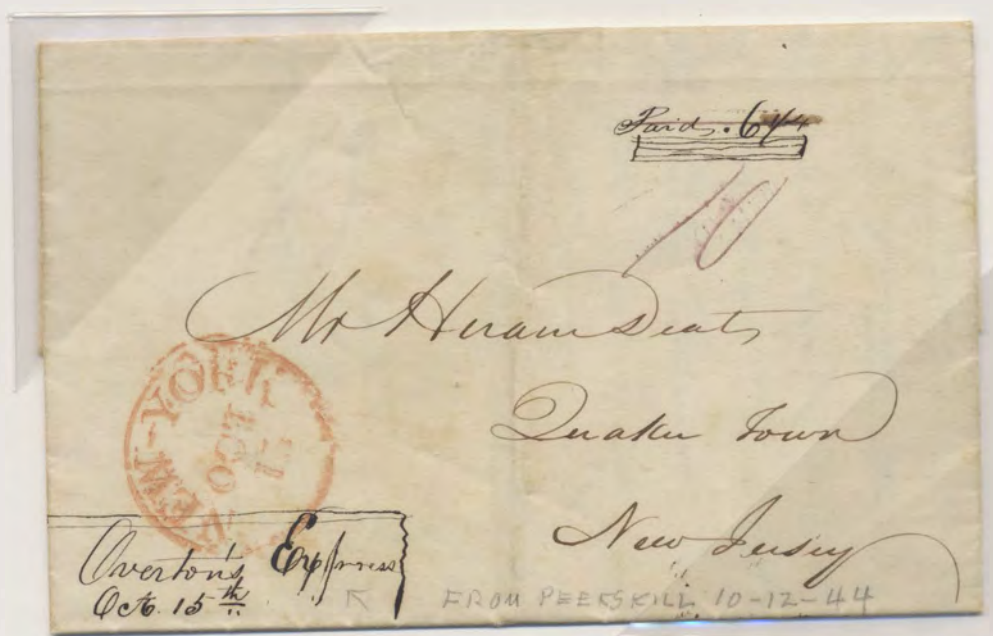 Paid. 6¼
10
Mr Hiram Deats
Quaker Town
New Jersey
NEW-YORK
OCT
Overton's Express
Oct. 15th
FROM PEEKSKILL 10-12-44